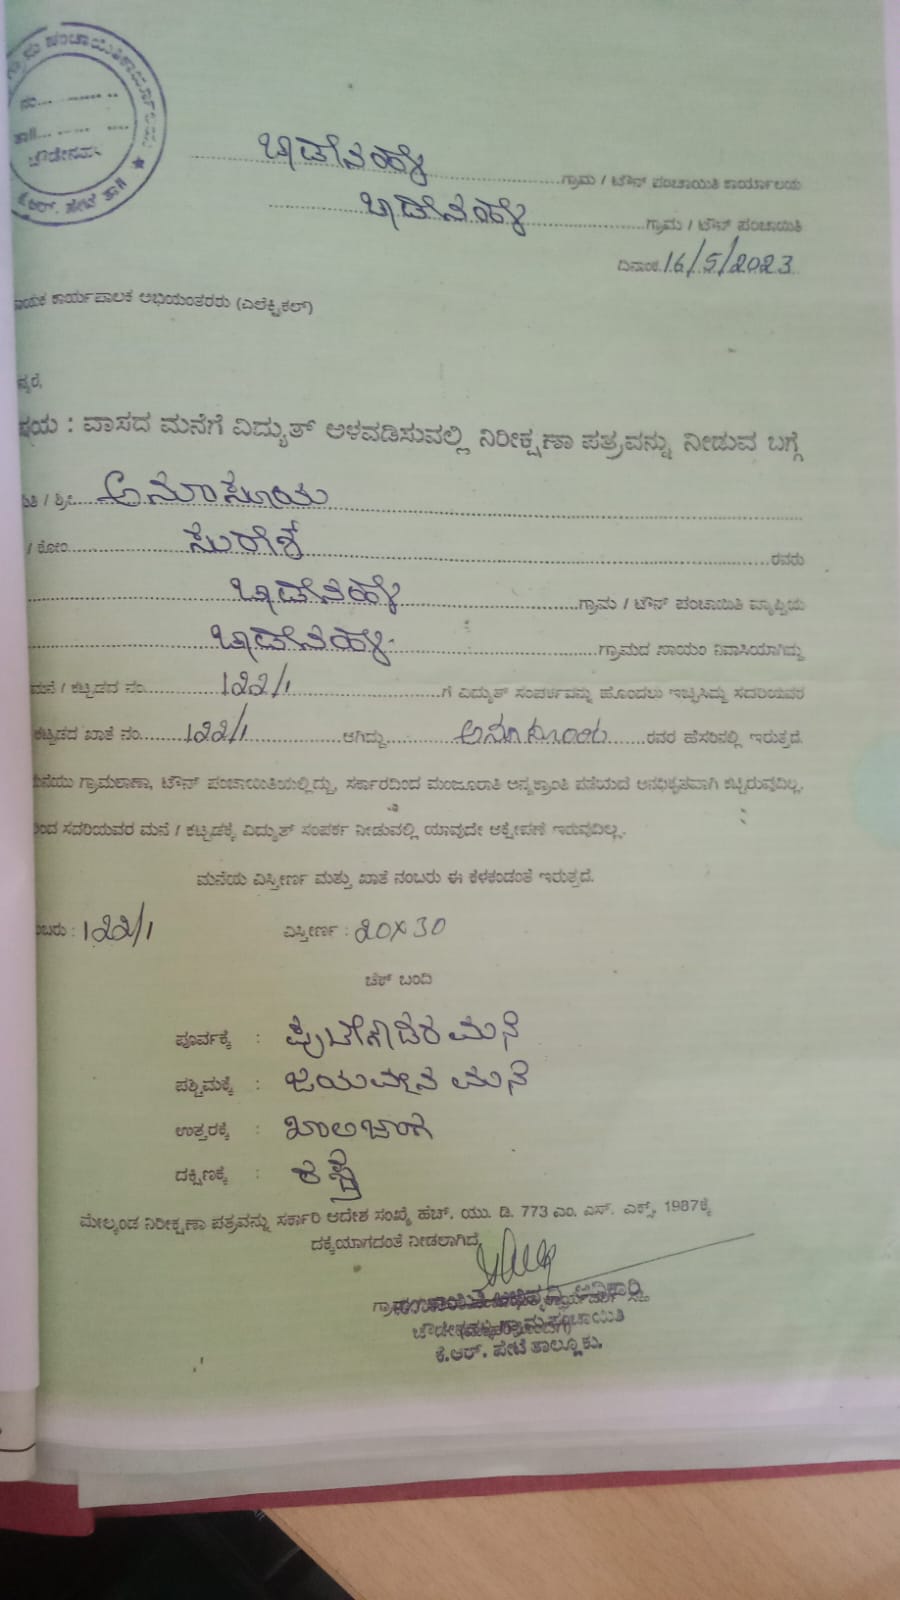 ನಂ... ........ ..
ತಾ||... ...... ....
ಕೆ.ಆರ್. ಪೇಟೆ ತಾ||
ಗ್ರಾಮ / ಟೌನ್ ಪಂಚಾಯಿತಿ ಕಾರ್ಯಾಲಯ
ಗ್ರಾಮ / ಟೌನ್ ಪಂಚಾಯಿತಿ
ದಿನಾಂಕ 16/5/2023
ಕಾರ್ಯಪಾಲಕ ಅಭಿಯಂತರರು (ಎಲೆಕ್ಟ್ರಿಕಲ್)
ನ್ಯರೆ,
ಷಯ : ವಾಸದ ಮನೆಗೆ ವಿದ್ಯುತ್ ಅಳವಡಿಸುವಲ್ಲಿ ನಿರೀಕ್ಷಣಾ ಪತ್ರವನ್ನು ನೀಡುವ ಬಗ್ಗೆ
/ ಶ್ರೀ ಅನುಸೂಯ
/ ಕೋಂ ಸುರೇಶ ರವರು
ಗ್ರಾಮ / ಟೌನ್ ಪಂಚಾಯಿತಿ ವ್ಯಾಪ್ತಿಯ
ಗ್ರಾಮದ ಖಾಯಂ ನಿವಾಸಿಯಾಗಿದ್ದು
ಮನೆ / ಕಟ್ಟಡದ ನಂ. 122/1 ಗೆ ವಿದ್ಯುತ್ ಸಂಪರ್ಕವನ್ನು ಹೊಂದಲು ಇಚ್ಛಿಸಿದ್ದು ಸದರಿಯವರ
ಕಟ್ಟಡದ ಖಾತೆ ನಂ. 122/1 ಆಗಿದ್ದು ಅನುಸೂಯ ರವರ ಹೆಸರಿನಲ್ಲಿ ಇರುತ್ತದೆ.
ನೆಯು ಗ್ರಾಮಠಾಣಾ, ಟೌನ್ ಪಂಚಾಯಿತಿಯಲ್ಲಿದ್ದು, ಸರ್ಕಾರದಿಂದ ಮಂಜೂರಾತಿ ಅನ್ಯಕ್ರಾಂತಿ ಪಡೆಯದೆ ಅನಧಿಕೃತವಾಗಿ ಕಟ್ಟಿರುವುದಿಲ್ಲ.
ರಿಂದ ಸದರಿಯವರ ಮನೆ / ಕಟ್ಟಡಕ್ಕೆ ವಿದ್ಯುತ್ ಸಂಪರ್ಕ ನೀಡುವಲ್ಲಿ ಯಾವುದೇ ಆಕ್ಷೇಪಣೆ ಇರುವುದಿಲ್ಲ.
ಮನೆಯ ವಿಸ್ತೀರ್ಣ ಮತ್ತು ಖಾತೆ ನಂಬರು ಈ ಕೆಳಕಂಡಂತೆ ಇರುತ್ತದೆ.
ಂಬರು : 122/1 ವಿಸ್ತೀರ್ಣ : 20x30
ಚೆಕ್ ಬಂದಿ
ಪೂರ್ವಕ್ಕೆ : ಮನೆ
ಪಶ್ಚಿಮಕ್ಕೆ : ಮನೆ
ಉತ್ತರಕ್ಕೆ : ಖಾಲಿ ಜಾಗ
ದಕ್ಷಿಣಕ್ಕೆ : ರಸ್ತೆ
ಮೇಲ್ಕಂಡ ನಿರೀಕ್ಷಣಾ ಪತ್ರವನ್ನು ಸರ್ಕಾರಿ ಆದೇಶ ಸಂಖ್ಯೆ ಹೆಚ್. ಯು. ಡಿ. 773 ಎಂ. ಎಸ್. ಎಕ್ಸ್. 1987ಕ್ಕೆ
ದಕ್ಕೆಯಾಗದಂತೆ ನೀಡಲಾಗಿದೆ
ಗ್ರಾಮ ಪಂಚಾಯಿತಿ
ಕೆ.ಆರ್. ಪೇಟೆ ತಾಲ್ಲೂಕು.